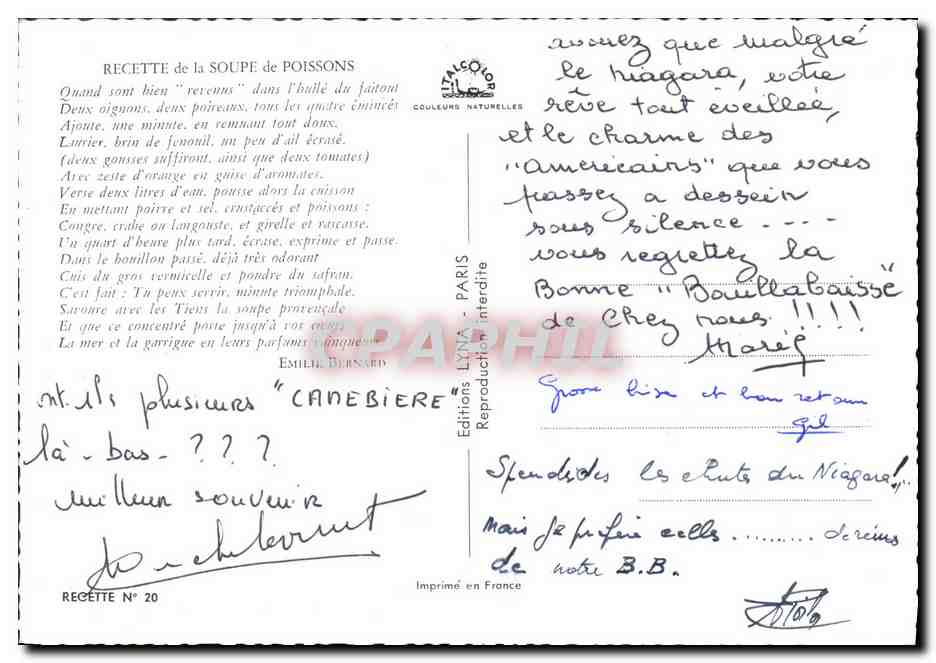 RECETTE de la SOUPE de POISSONS
Quand sont bien "revenus" dans l'huile du faitout
Deux oignons, deux poireaux, tous les quatre émincés
Ajoute, une minute, en remuant tout doux,
Laurier, brin de fenouil, un peu d'ail écrasé,
(deux gousses suffiront, ainsi que deux tomates)
Avec zeste d'orange en guise d'aromates.
Verse deux litres d'eau, pousse alors la cuisson
En mettant poivre et sel, crustacés et poissons :
Congre, crabe ou langouste, et girelle et rascasse.
Un quart d'heure plus tard, écrase, exprime et passe.
Dans le bouillon passé, déjà très odorant
Cuis du gros vermicelle et poudre du safran.
C'est fait : Tu peux servir, minute triomphale.
Savoure avec les Tiens la soupe provençale
Et que ce concentré porte jusqu'à vos cœurs
La mer et la garrigue en leurs parfums vainqueurs
EMILIE BERNARD
ont ils plusieurs "CANEBIERE"
là-bas-???
meilleur souvenir
RECETTE N° 20
ITALCOLOR
COULEURS NATURELLES
Editions LYNA - PARIS
Reproduction interdite
Imprimé en France
avouez que malgré
le Niagara, votre
rêve tout éveillée,
et le charme des
"américains" que vous
passez a dessein
sous silence ---
vous regrettez la
Bonne "Bouillabaisse"
de chez nous !!!!
Grosse bise et bon retour
Gil
Splendides les chutes du Niagara!..
Mais je préfère celles .......... de reins
de notre B.B.
APHIL